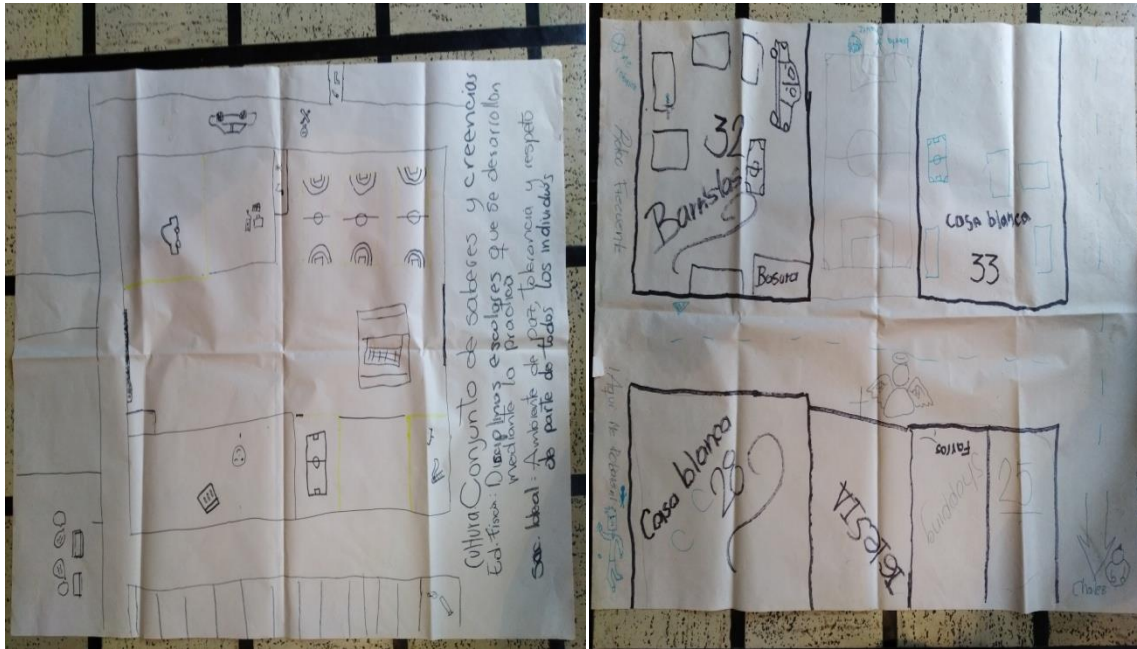 Cultura Conjunto de saberes y creencias
Ed. Fisica: Disciplinas escolares que se desarrollan
mediante la practica
Soc. Ideal: Ambiente de paz, tolerancia y respeto
de parte de todos los individuos
Poco Frecuente
32
Barristas
Basura
casa blanca
33
Casa blanca
28
IGLESIA
Farros
Shopping
25
Choles